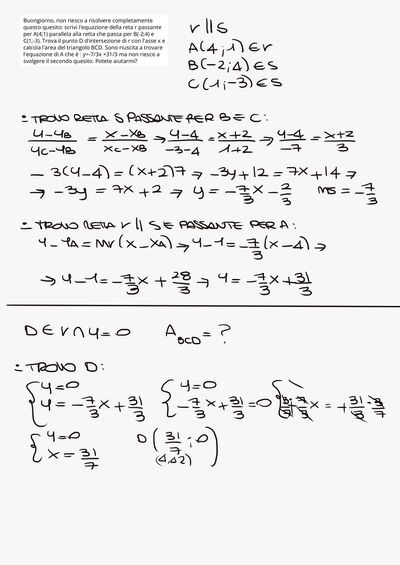 Buongiorno, non riesco a risolvere completamente
questo quesito: scrivi l'equazione della reta r passante
per A(4;1) parallela alla retta che passa per B(-2;4) e
C(1;-3). Trova il punto D d'intersezione di r con l'asse x e
calcola l'area del triangolo BCD. Sono riuscita a trovare
l'equazione di A che è : y=-7/3x +31/3 ma non riesco a
svolgere il secondo quesito. Potete aiutarmi?
r // s
A(4;1) ∈ r
B(-2;4) ∈ S
C(1;-3) ∈ S
= TROVO RETTA S PASSANTE PER B E C:
(y-yB)/(yC-yB) = (x-xB)/(xC-xB) → (y-4)/(-3-4) = (x+2)/(1+2) → (y-4)/-7 = (x+2)/3
- 3(y-4) = (x+2)7 → -3y+12 = 7x+14 →
→ -3y = 7x+2 → y = -7/3x - 2/3 ms = -7/3
= TROVO RETA r // S E PASSANTE PER A:
y-yA = Mr(x-xA) → y-1 = -7/3(x-4) →
→ y-1 = -7/3x + 28/3 → y = -7/3x + 31/3
D ∈ r ∩ y=0 A BCD = ?
= TROVO D:
{ y=0 { y=0 {
y = -7/3x + 31/3 -7/3x + 31/3 = 0 x = +31/3
{ y=0 D (31/7 ; 0)
x = 31/7 (4,42)